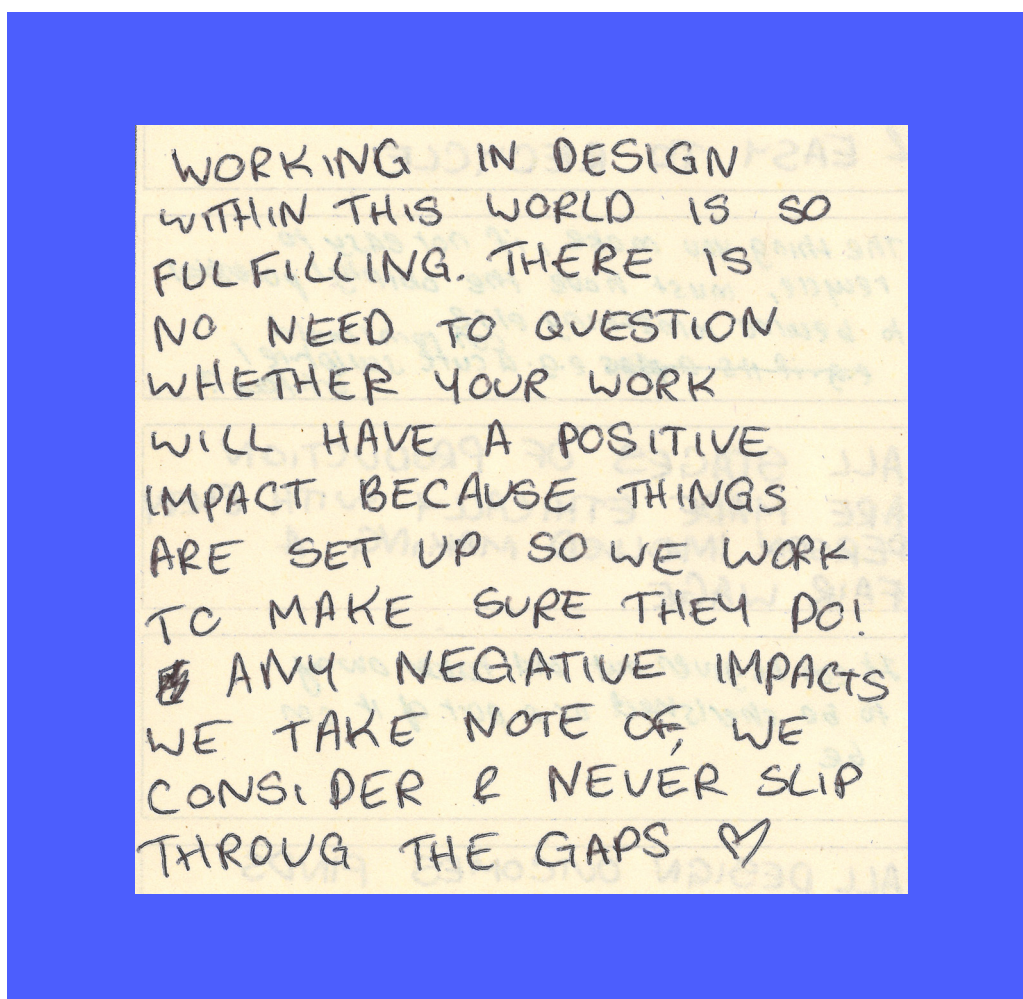 WORKING IN DESIGN
WITHIN THIS WORLD IS SO
FULFILLING. THERE IS
NO NEED TO QUESTION
WHETHER YOUR WORK
WILL HAVE A POSITIVE
IMPACT BECAUSE THINGS
ARE SET UP SO WE WORK
TO MAKE SURE THEY DO!
ANY NEGATIVE IMPACTS
WE TAKE NOTE OF, WE
CONSIDER & NEVER SLIP
THROUG THE GAPS ♡